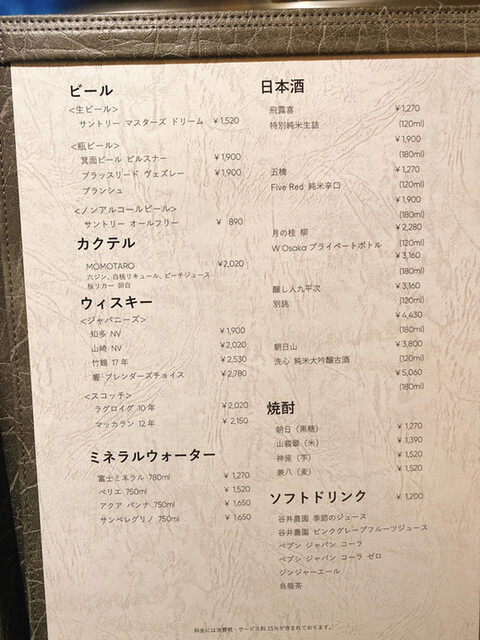 ビール
<生ビール>
サントリー マスターズ ドリーム ¥1,520
<瓶ビール>
箕面ビール ピルスナー ¥1,900
ブラッスリード ヴェズレー ¥1,900
ブランシュ
<ノンアルコールビール>
サントリー オールフリー ¥ 890
カクテル
MOMOTARO ¥2,020
六ジン、白桃リキュール、ピーチジュース
桜リカー 卵白
ウィスキー
<ジャパニーズ>
知多 NV ¥1,900
山崎 NV ¥2,020
竹鶴 17年 ¥2,530
響 ブレンダーズチョイス ¥2,780
<スコッチ>
ラグロイグ 10年 ¥2,020
マッカラン 12年 ¥2,150
ミネラルウォーター
富士ミネラル 780ml ¥1,270
ペリエ 750ml ¥1,520
アクア パンナ 750ml ¥1,650
サンペレグリノ 750ml ¥1,650
日本酒
飛露喜 ¥1,270
特別純米生詰 (120ml)
¥1,900
(180ml)
五橋 ¥1,270
Five Red 純米辛口 (120ml)
¥1,900
(180ml)
月の桂 柳 ¥2,280
W Osaka プライベートボトル (120ml)
¥3,160
(180ml)
醸し人九平次 ¥3,160
別誂 (120ml)
¥4,430
(180ml)
朝日山 ¥3,800
洗心 純米大吟醸古酒 (120ml)
¥5,060
(180ml)
焼酎
朝日（黒糖） ¥1,270
山翡翠（米） ¥1,390
神座（芋） ¥1,520
兼八（麦） ¥1,520
ソフトドリンク ¥1,200
谷井農園 季節のジュース
谷井農園 ピンクグレープフルーツジュース
ペプシ ジャパン コーラ
ペプシ ジャパン コーラ ゼロ
ジンジャーエール
烏龍茶
料金には消費税・サービス料 15%が含まれております。